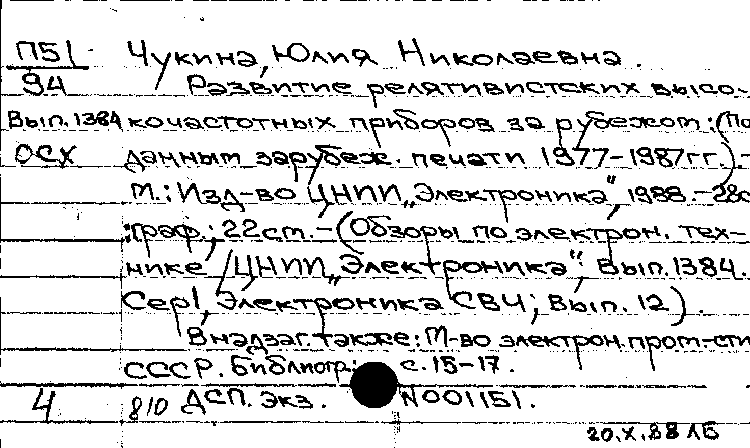 П51 Чукина, Юлия Николаевна.
94 Развитие релятивистских высо-
Вып.1384 кочастотных приборов за рубежом: (По
ОСХ данным зарубеж. печати 1977-1987гг.). -
М.: Изд-во ЦНИИ „Электроника", 1988. - 28с
: граф.; 22см. - (Обзоры по электрон. тех-
нике / ЦНИИ „Электроника"; Вып.1384.
Сер 1, Электроника СВЧ; Вып. 12).
В надзаг. также: М-во электрон. пром-сти
СССР. Библиогр.: с. 15-17.
4 810 ДСП. Экз. N001151.
20.X.88 ЛБ